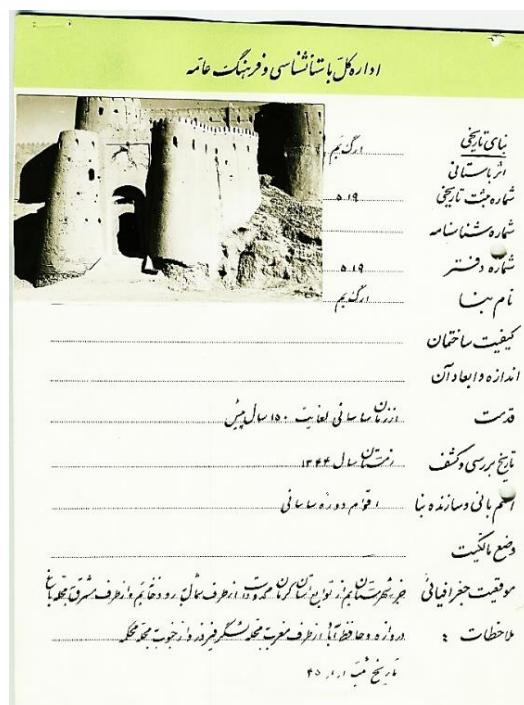 اداره کل باستانشناسی و فرهنگ عامه
بنای تاریخی ارگ بم
اثر باستانی
شماره ثبت تاریخی ۵۱۹
شماره شناسنامه
شماره دفتر ۵۱۹
نام بنا ارگ بم
کیفیت ساختمان
اندازه و ابعاد آن
قدمت از زمان ساسانی لغایت ۱۵۰ سال پیش
تاریخ بررسی و کشف زمستان سال ۱۳۴۴
اسم بانی و سازنده بنا اقوام دوره ساسانی
وضع مالکیت
موقعیت جغرافیائی جزء شهرستان بم از توابع استان کرمان محدود از طرف شمال به رودخانه بم و از طرف مشرق به محله باغ
ملاحظات : دروازه و حافظ آباد از طرف مغرب به محله لشگر فیروز و از جنوب به محله
تاریخ ثبت ۴۵